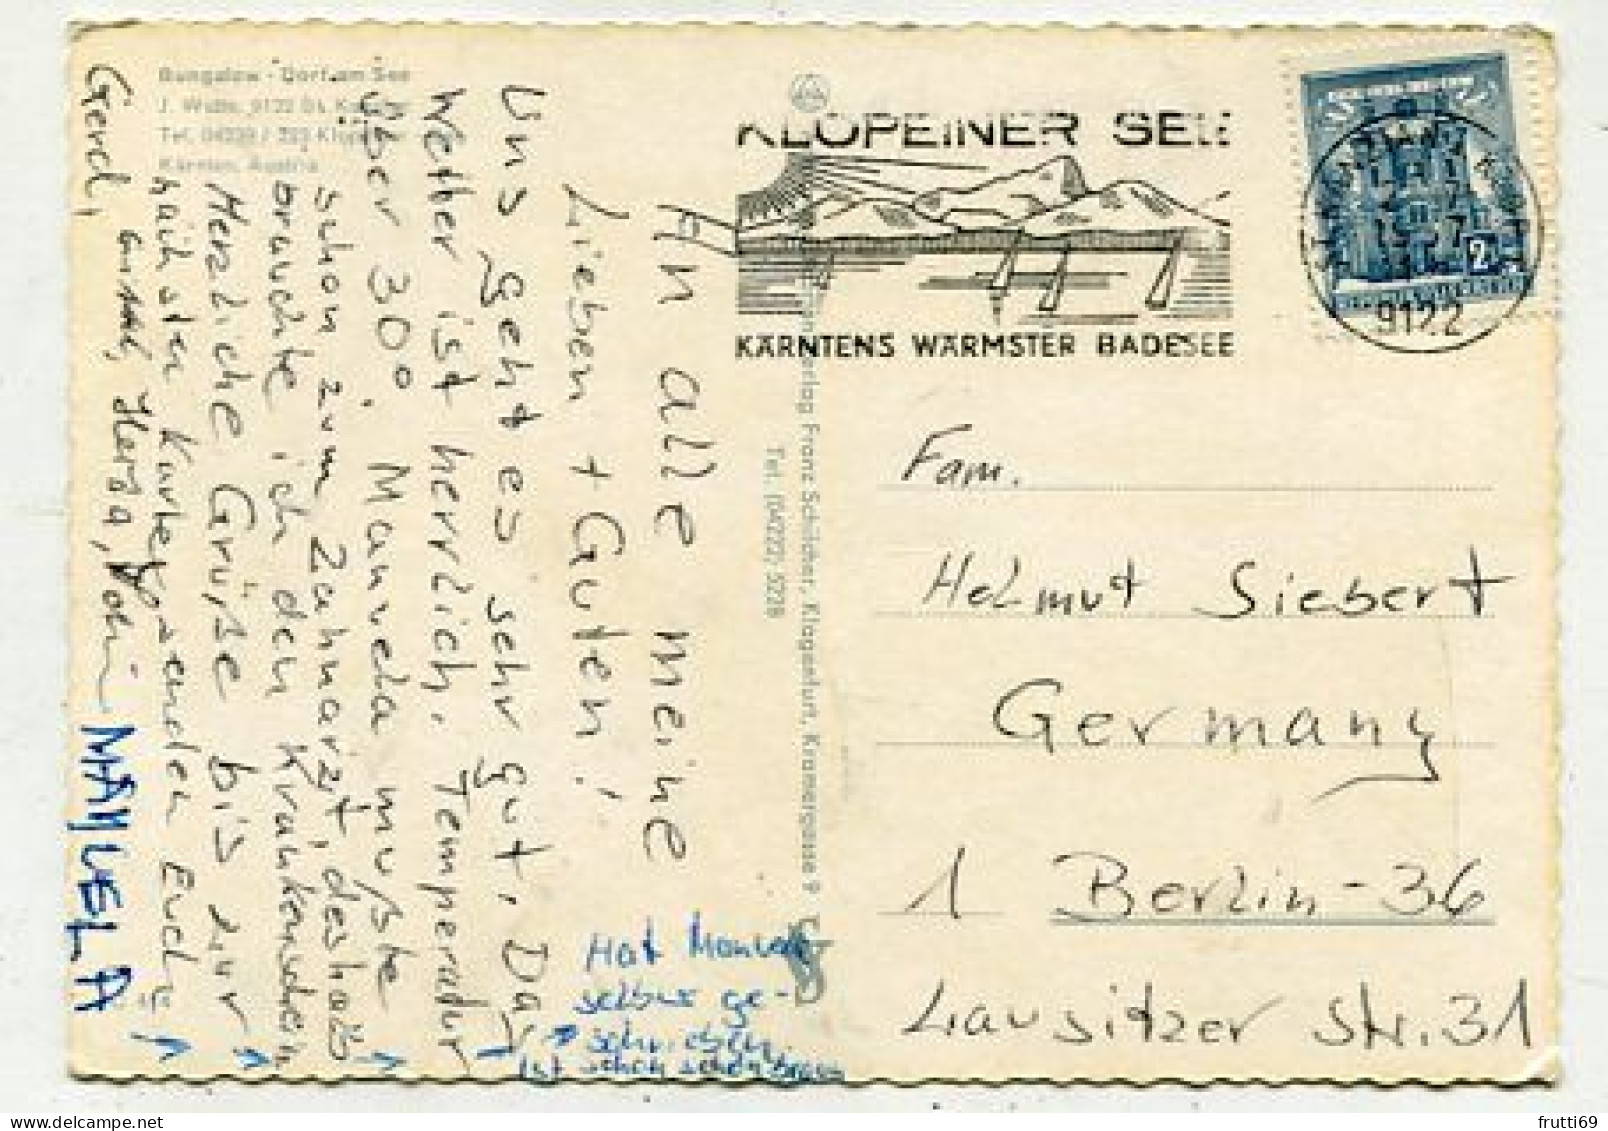 Bungalow - Dorf am See
J. Wutte, 9122 St. Kanzian
Tel. 04239 / 223 Klopein
Kärnten, Austria
An alle meine
Lieben + Guten!
Uns geht es sehr gut. Das
Wetter ist herrlich. Temperatur
über 30°. Manuela mußte
schon zum Zahnarzt, deshalb
brauchte ich den Krankenschein
Herzliche Grüße bis zur
nächsten Karte, senden Euch
Gerd,
Herta,
MANUELA
Hat Manuela
selber ge-
schrieben.
Ist schon schön braun
Franz Schilcher, Klagenfurt, Kramergasse 9
Tel. (04222) 5228
KLOPEINER SEE
KÄRNTENS WÄRMSTER BADESEE
2
9122
Fam.
Helmut Siebert
Germany
1 Berlin-36
Lausitzer Str. 31
frutti69